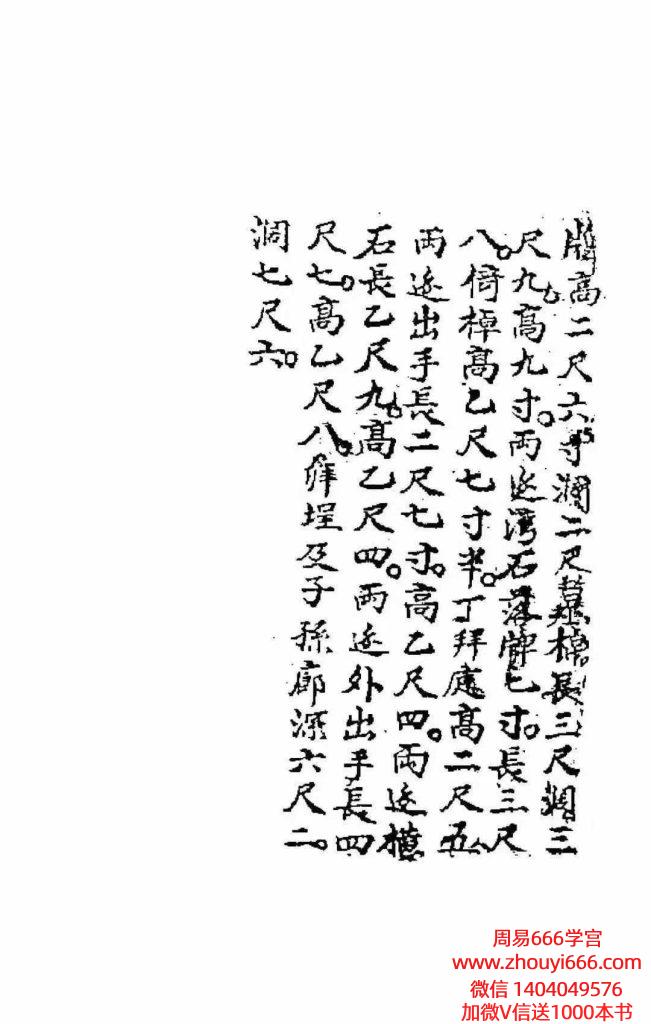 牌高二尺六寸濶二尺棹長三尺濶三
尺九。高九寸。两边湾石落牌七寸。長三尺
八。倚棹高乙尺七寸半。丁拜處高二尺五
両边出手長二尺七寸。高乙尺四。両边
石長乙尺九。高乙尺四。両边外出手長四
尺七。高乙尺八。埕及子孫廊深六尺二。
濶七尺六。
周易666学宫
www.zhouyi666.com
微信 1404049576
加微V信送1000本书